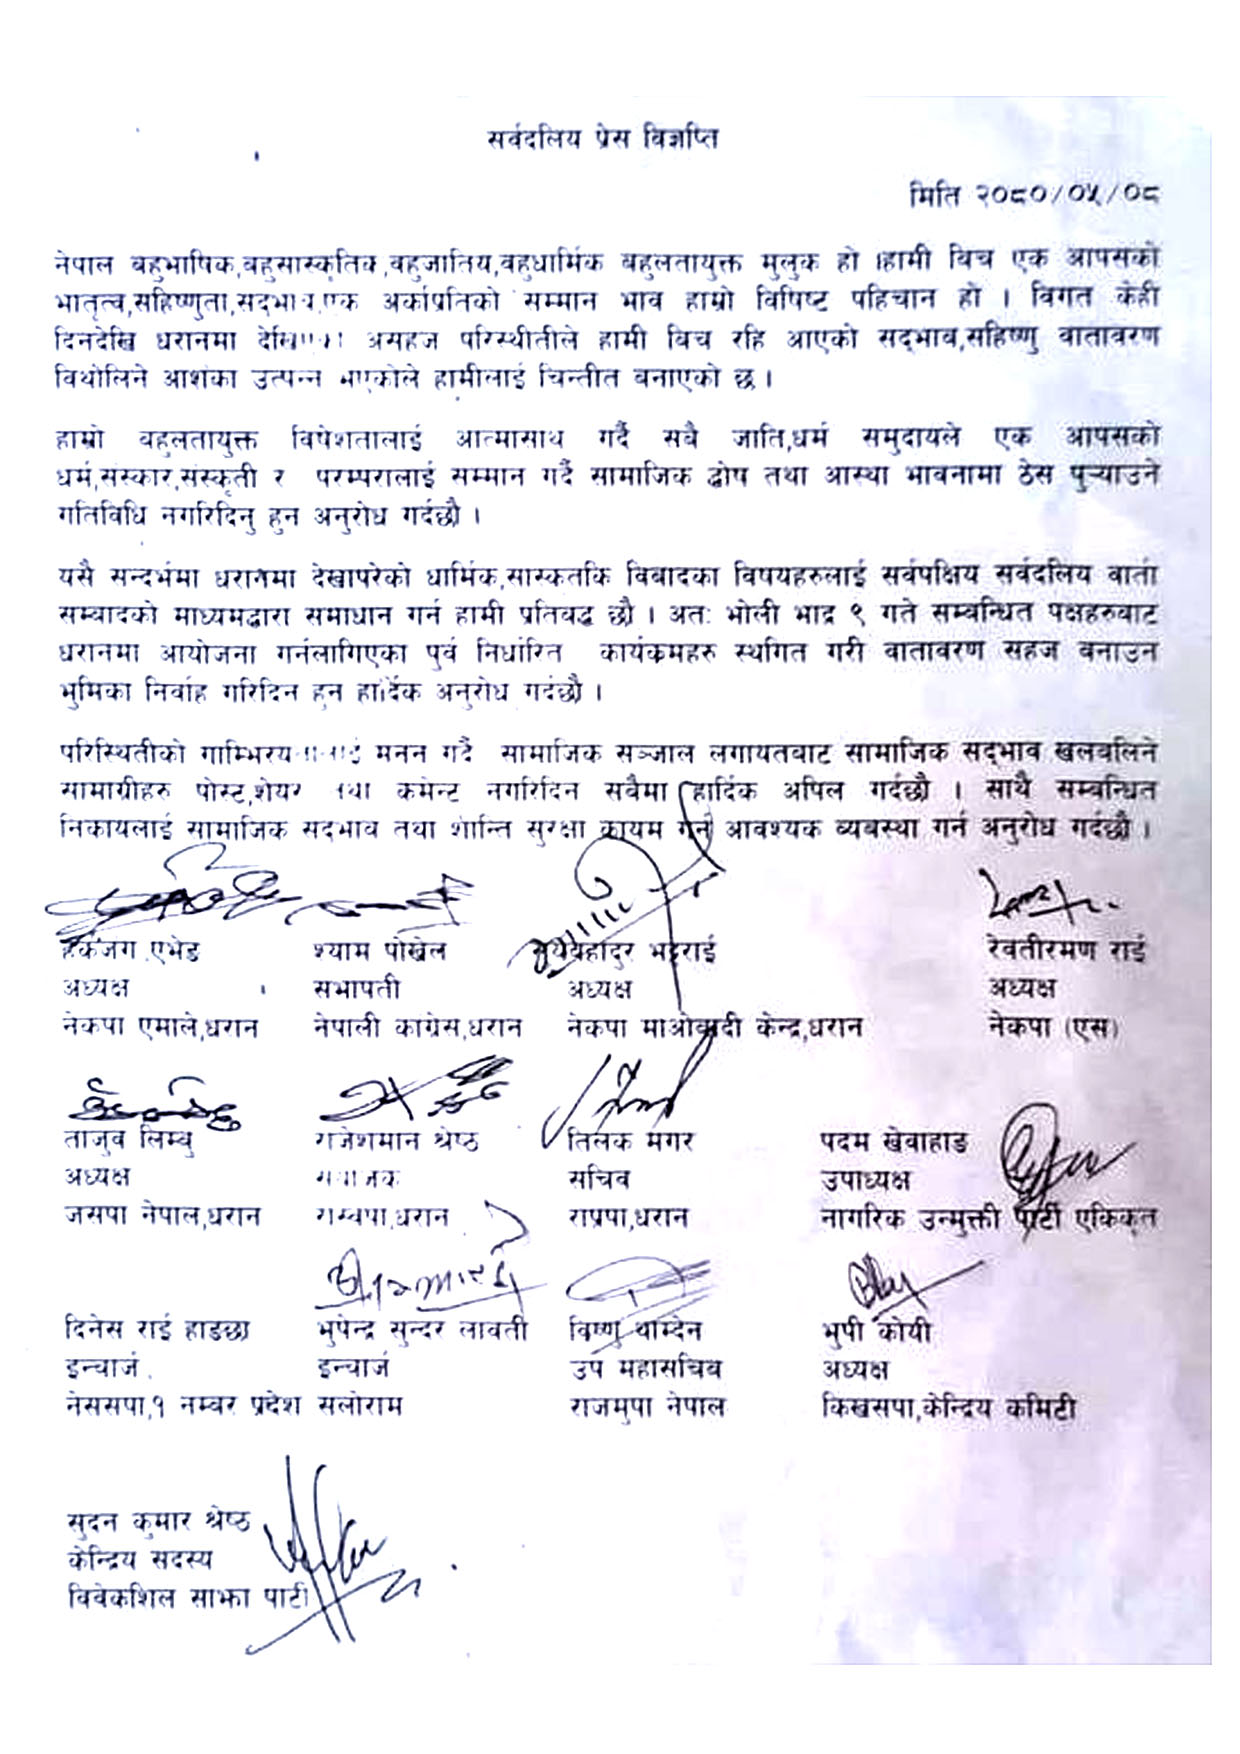 सर्वदलिय प्रेस विज्ञप्ति
मिति २०८०/०५/०८
नेपाल बहुभाषिक,बहुसास्कृतिक,बहुजातिय,बहुधार्मिक बहुलतायुक्त मुलुक हो ।हामी बिच एक आपसको
भातृत्व,सहिष्णुता,सदभाव,एक अर्काप्रतिको सम्मान भाव हाम्रो विषिष्ट पहिचान हो । विगत केही
दिनदेखि धरानमा असहज परिस्थीतीले हामी बिच रहि आएको सद्भाव,सहिष्णु वातावरण
विथोलिने आशंका उत्पन्न भएकोले हामीलाई चिन्तीत बनाएको छ ।
हाम्रो बहुलतायुक्त विषेशतालाई आत्मासाथ गर्दै सबै जाति,धर्म समुदायले एक आपसको
धर्म,संस्कार,संस्कृती र परम्परालाई सम्मान गर्दै सामाजिक द्धोष तथा आस्था भावनामा ठेस पुऱ्याउने
गतिविधि नगरिदिनु हुन अनुरोध गर्दछौ ।
यसै सन्दर्भमा धरानमा देखापरेको धार्मिक,सास्कतकि विबादका विषयहरुलाई सर्वपक्षिय सर्वदलिय वार्ता
सम्बादको माध्यमद्वारा समाधान गर्न हामी प्रतिबद्ध छौ । अतः भोली भाद्र ९ गते सम्बन्धित पक्षहरुबाट
धरानमा आयोजना गर्नलागिएका पुर्व निर्धारित कार्यक्रमहरु स्थगित गरी वातावरण सहज बनाउन
भुमिका निर्वाह गरिदिन हुन हार्दिक अनुरोध गर्दछौ ।
परिस्थितीको मनन गर्दै सामाजिक सञ्जाल लगायतबाट सामाजिक सद्भाव खलबलिने
सामाग्रीहरु पोस्ट,शेयर तथा कमेन्ट नगरिदिन सबैमा हार्दिक अपिल गर्दछौ । साथै सम्बन्धित
निकायलाई सामाजिक सदभाव तथा शान्ति सुरक्षा कायम गर्न आवश्यक व्यबस्था गर्न अनुरोध गर्दछौ ।
श्याम पोखेल भट्टराई रेवतीरमण राई
अध्यक्ष सभापती अध्यक्ष अध्यक्ष
नेकपा एमाले,धरान नेपाली काग्रेस,धरान नेकपा माओवादी केन्द्र,धरान नेकपा (एस)
ताजुव लिम्बु राजेशमान श्रेष्ठ तिलक मगर पदम खेवाहाङ
अध्यक्ष सचिव उपाध्यक्ष
जसपा नेपाल,धरान राप्रपा,धरान नागरिक उन्मुक्ती पार्टी एकिकृत
दिनेस राई हाङछा भुपेन्द्र सुन्दर लावती विष्णु याम्देन भुपी कोयी
इन्चार्ज इन्चार्ज उप महासचिव अध्यक्ष
नेससपा,१ नम्बर प्रदेश सलोराम राजमुपा नेपाल किखसपा,केन्द्रिय कमिटी
सुदन कुमार श्रेष्ठ
केन्द्रिय सदस्य
विवेकशिल साझा पार्टी